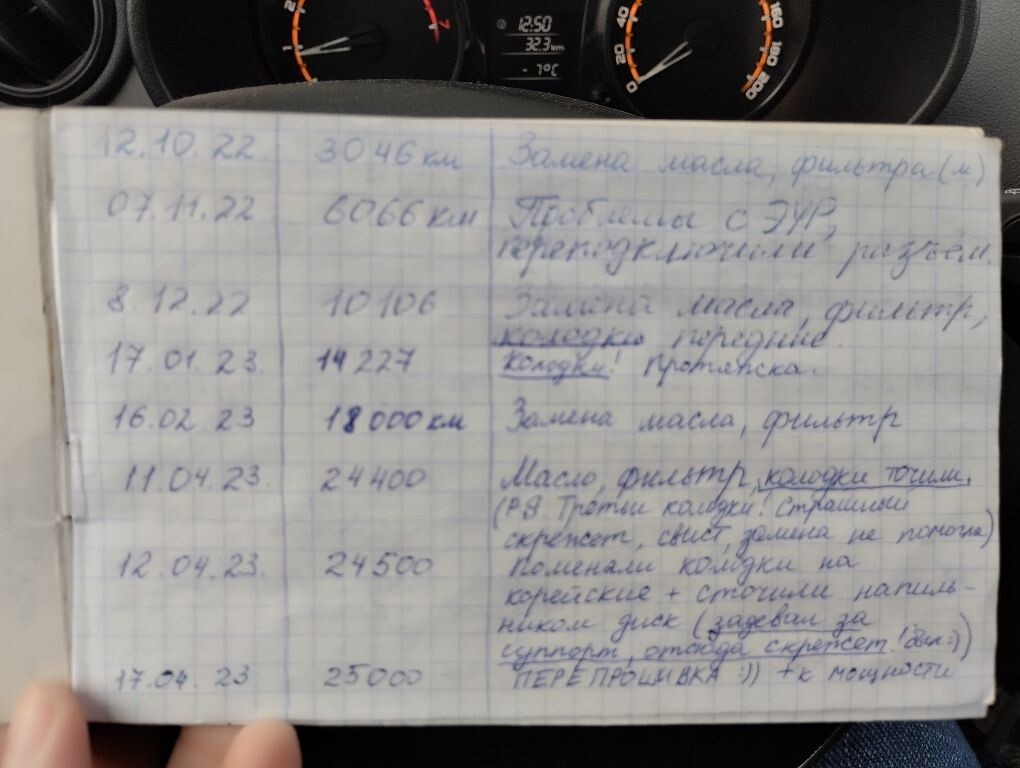 2
1
7
12:50
32.3 km
- 7°C
40
20
0
160
180
200
12.10.22 3046 км Замена масла, фильтра (м)
07.11.22 6066 км Проблемы с ЭУР,
переподключили разъём.
8.12.22 10106 Замена масла, фильтр,
колодки передние.
17.01.23. 14227 Колодки! Протяжка.
16.02.23 18000 км Замена масла, фильтр
11.04.23. 24400 Масло, фильтр, колодки точили.
Третьи колодки! Страшный
скрежет, свист, замена не помогла)
12.04.23. 24500 Поменяли колодки на
корейские + сточили напиль-
ником диск (задевал за
суппорт, отсюда скрежет! был :))
17.04.23 25000 ПЕРЕПРОШИВКА :)) + к мощности